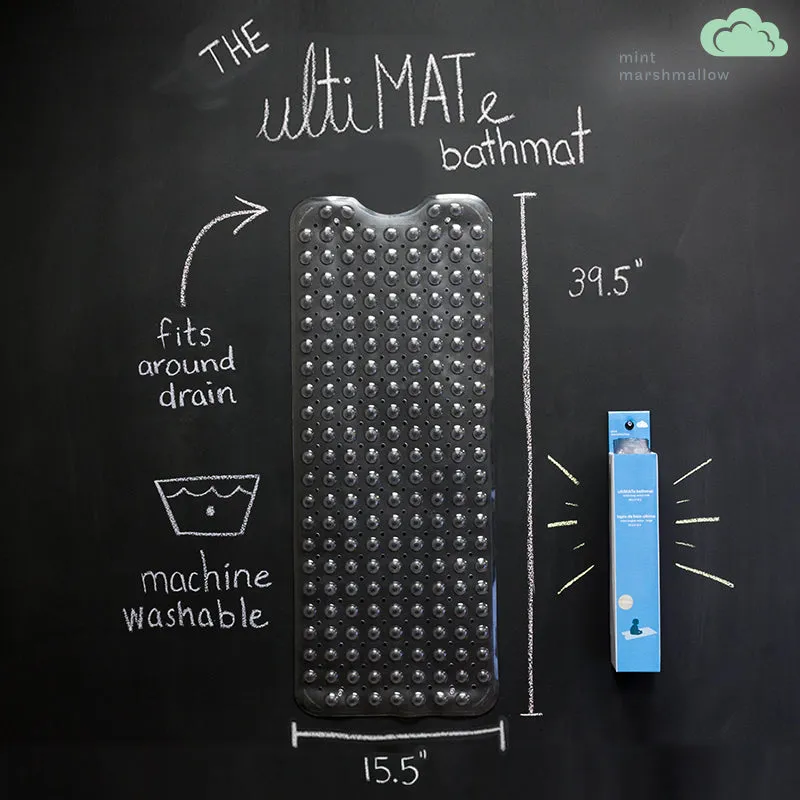 THE
ultiMATe
bathmat
mint
marshmallow
39.5"
fits
around
drain
machine
washable
15.5"
ultiMATe bathmat